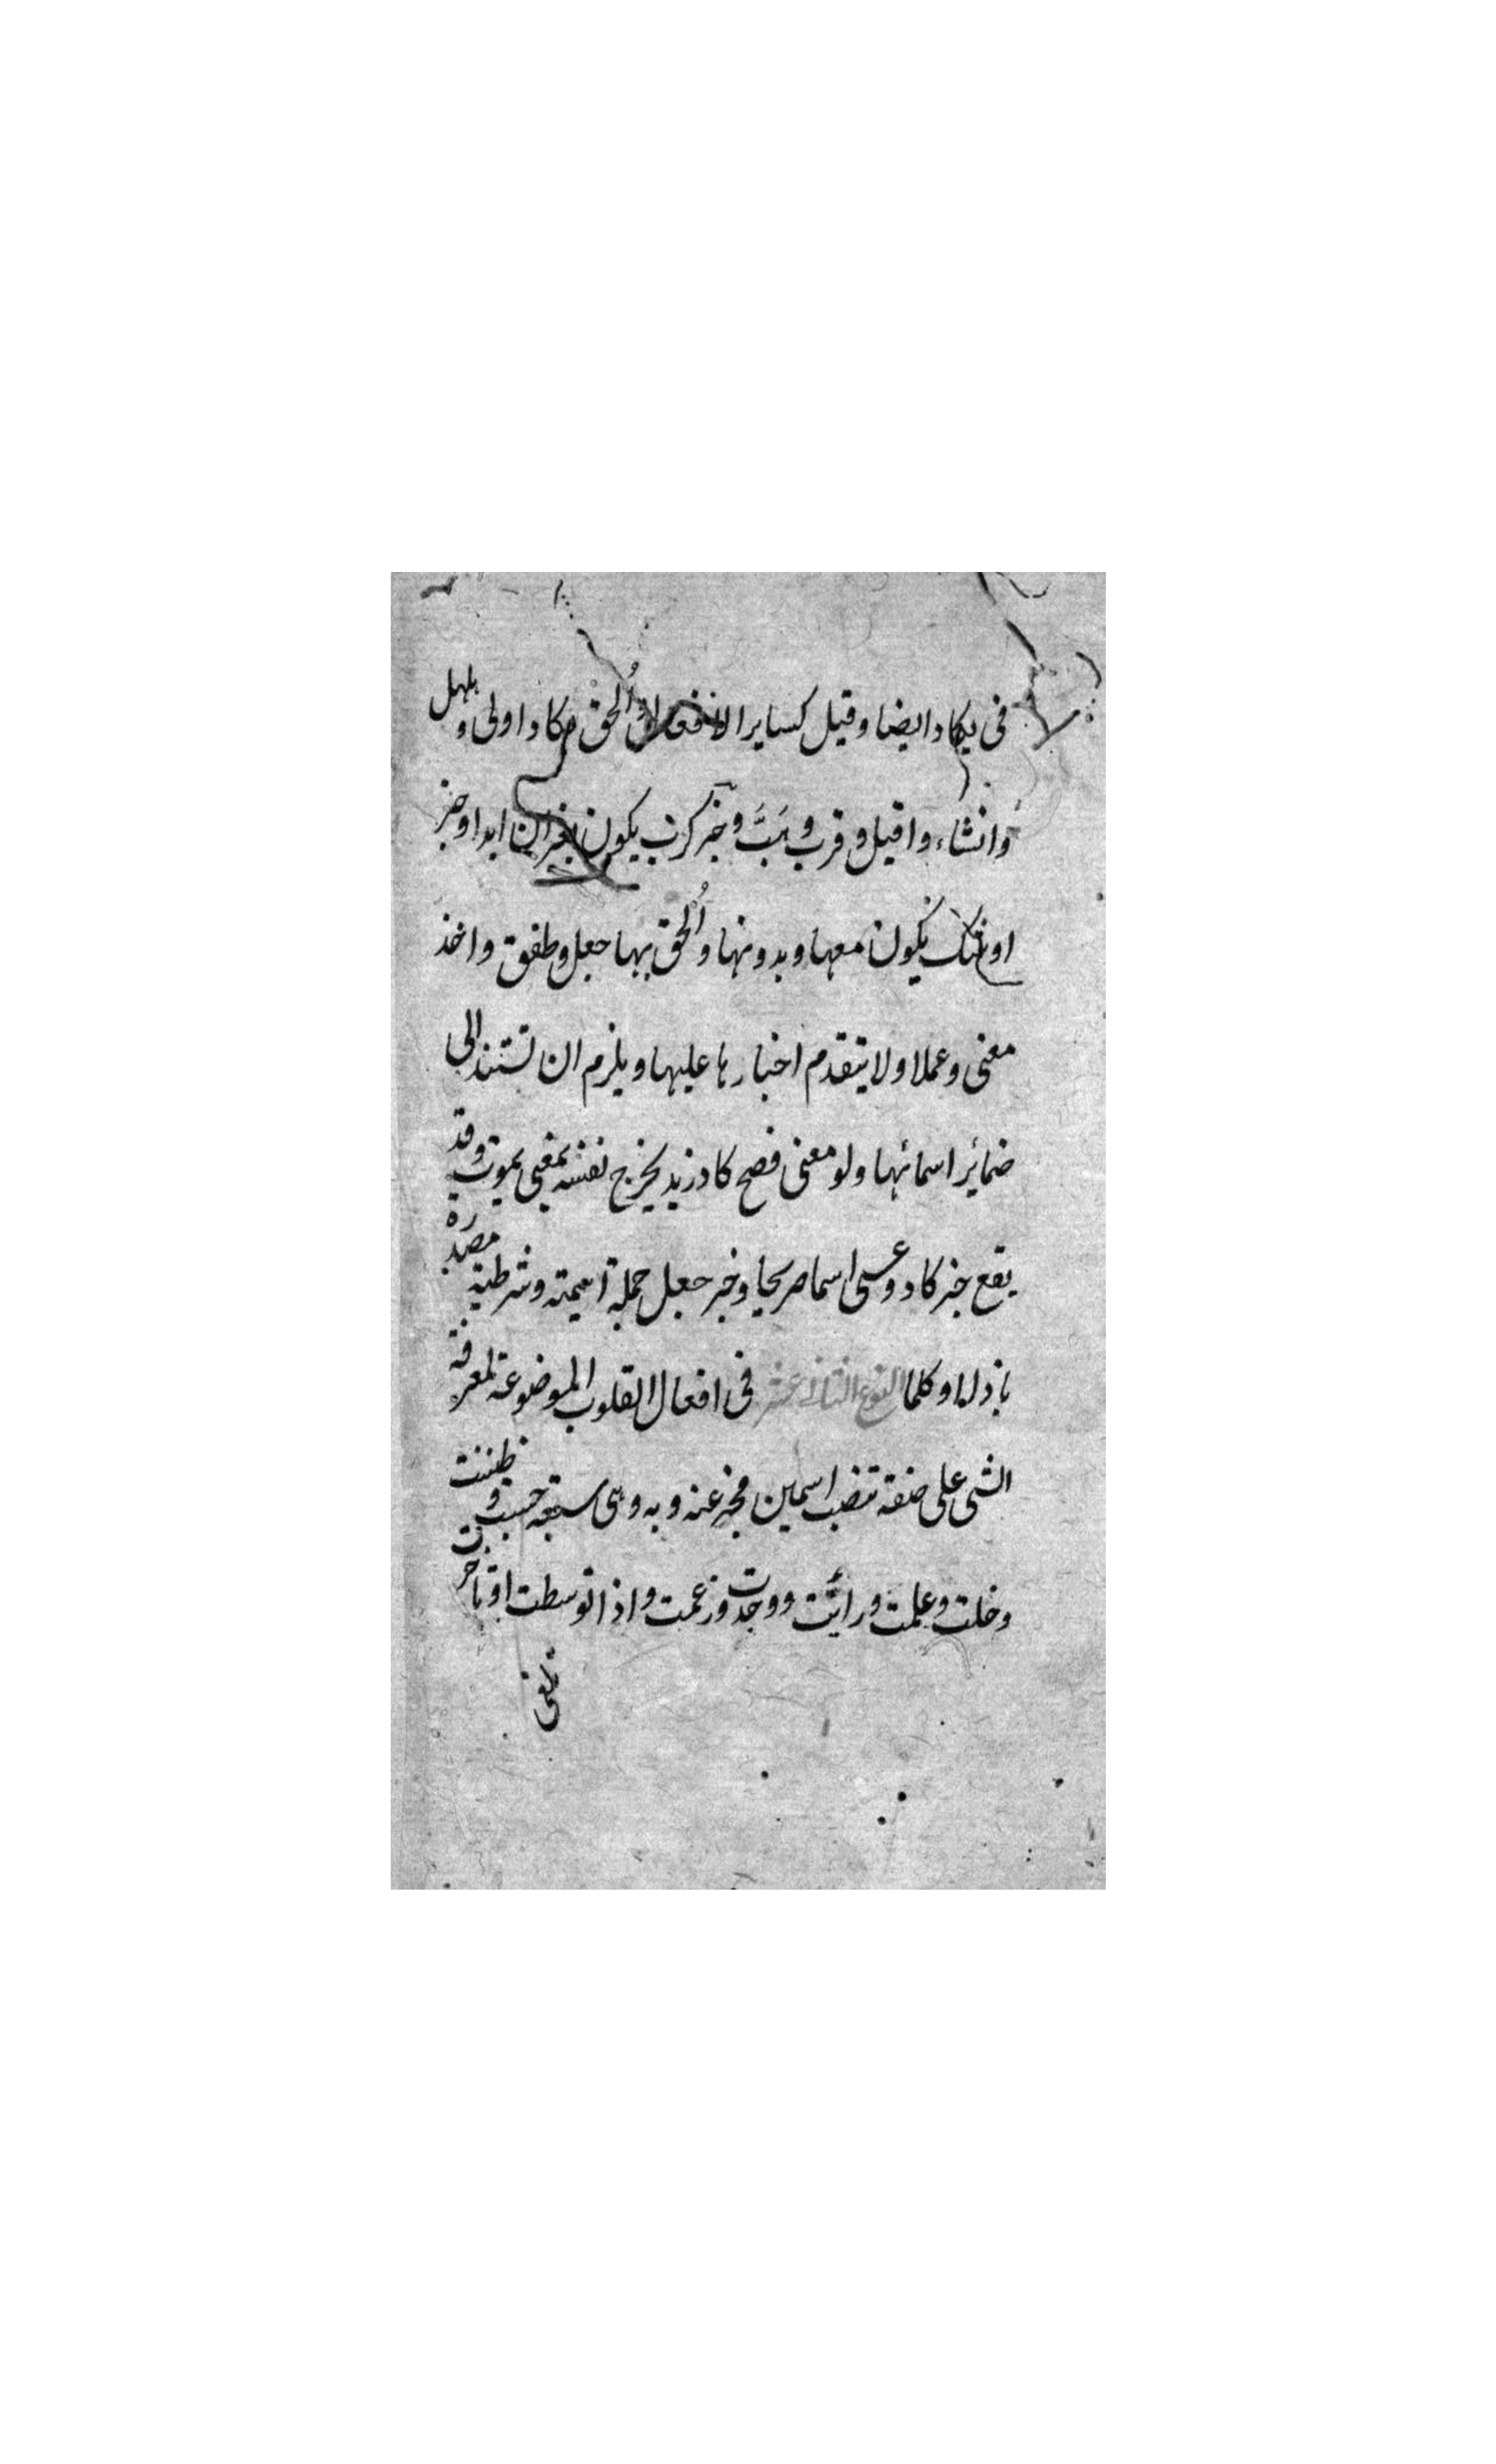 في يكاد ايضا وقيل كساير الافعال واُلحق بكاد اولى وهلهل
وانشاء واقبل وقرب وهَبَّ وخبر كرب يكون بغير ان ابدا وخبر
اوشك يكون معها وبدونها واُلحق بها جعل وطفق واخذ
معنى وعملا ولا يتقدم اخبارها عليها ويلزم ان تستند الى
ضمائر اسمائها ولو معنى فصح كاد زيد يخرج نفسه بمعنى يموت وقد
يقع خبر كاد وعسى اسما صريحا وخبر جعل جملة اسمية وشرطية مصدرة
باذا او كلما النوع الثاني عشر في افعال القلوب الموضوعة لمعرفة
الشى على صفة تنصب اسمين مخبر عنه وبه وهى سبعة حسبت وظننت
وخلت وعلمت ورأيت ووجدت وزعمت واذا توسطت او تأخرت
تلغى